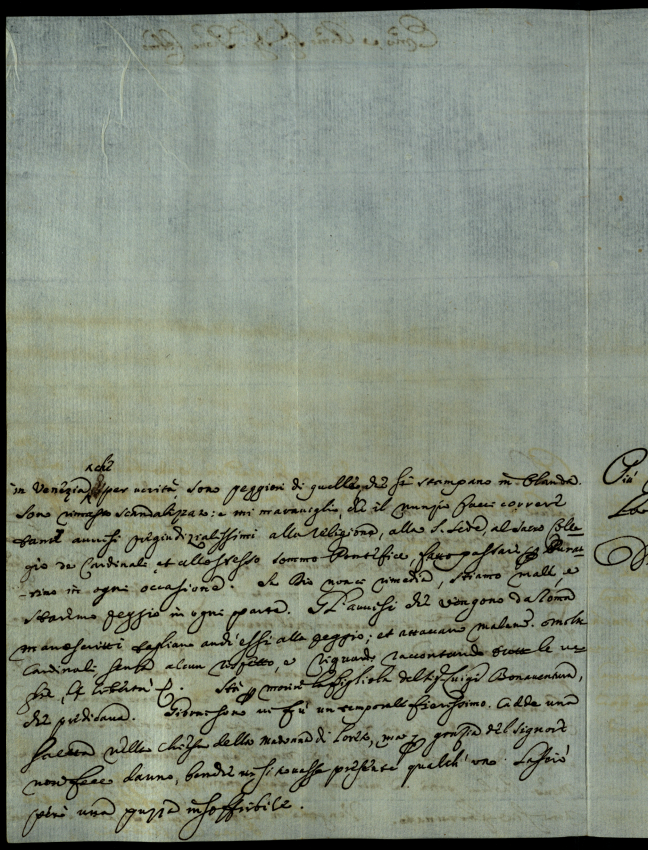 che
in Venezia, per verità, sono peggiori di quelle, che si stampano in Olanda.
Sono rimasto scandalizato: e mi maraviglio, che il nunzio facci correre
tanti avvisi pregiudizialissimi alla religione, alla S. Sede, al Sacro Colle-
gio de Cardinali et allo stesso sommo Pontefice
-rino in ogni occasione. Se Dio non ci rimedia, stiamo male, e
staremo peggio in ogni parte. Gl'avvisi che vengono da Roma
manoscritti tagliano anch'essi alla peggio; et attaccano
Cardinali senza alcun rispetto, e riguardo raccontando le
Sta morire la figliola del Sig. Luigi Bonaventura,
che predicava. vi fù un temporale fierissimo. Cadde una
saetta nella chiesa della Madonna di Loreto, ma grazia del Signore
non fece danno, benche vi si trovasse presente qualch'uno. Lasciò
però una puzza insoffribile.
Più